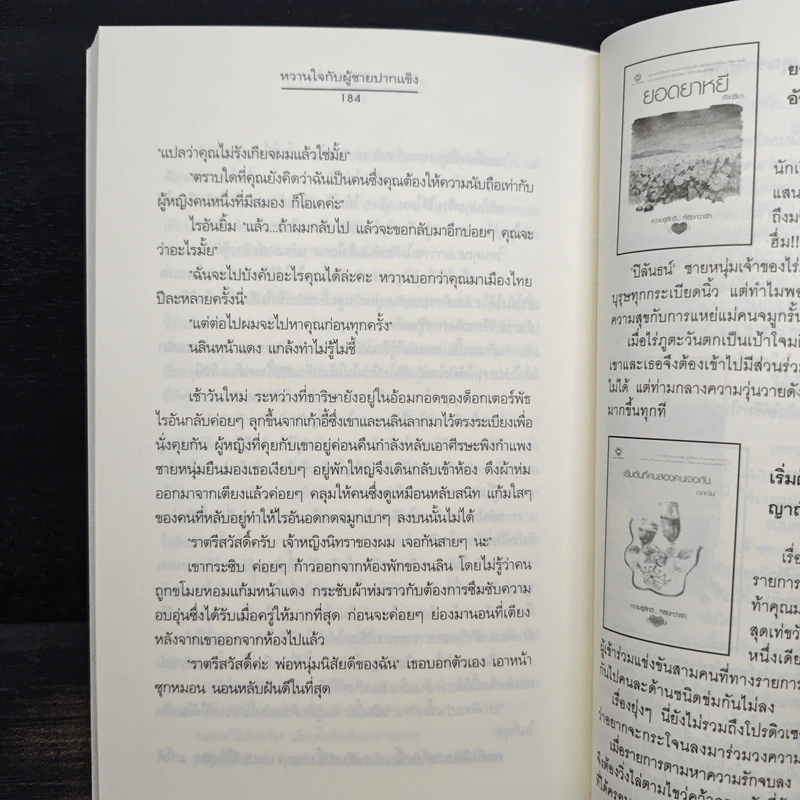 หวานใจกับผู้ชายปากแข็ง
184
"แปลว่าคุณไม่รังเกียจผมแล้วใช่มั้ย"
"ตราบใดที่คุณยังคิดว่าฉันเป็นคนซึ่งคุณต้องให้ความนับถือเท่ากับ
ผู้หญิงคนหนึ่งที่มีสมอง ก็โอเคค่ะ"
ไรอันยิ้ม "แล้ว...ถ้าผมกลับไป แล้วจะขอกลับมาอีกบ่อยๆ คุณจะ
ว่าอะไรมั้ย"
"ฉันจะไปบังคับอะไรคุณได้ล่ะคะ หวานบอกว่าคุณมาเมืองไทย
ปีละหลายครั้งนี่"
"แต่ต่อไปผมจะไปหาคุณก่อนทุกครั้ง"
นลินหน้าแดง แกล้งทำไม่รู้ไม่ชี้
เช้าวันใหม่ ระหว่างที่ธาริษายังอยู่ในอ้อมกอดของด็อกเตอร์พัธ
ไรอันกลับค่อยๆ ลุกขึ้นจากเก้าอี้ซึ่งเขาและนลินลากมาไว้ตรงระเบียงเพื่อ
นั่งคุยกัน ผู้หญิงที่คุยกับเขาอยู่ค่อนคืนกำลังหลับเอาศีรษะพิงกำแพง
ชายหนุ่มยืนมองเธอเงียบๆ อยู่พักใหญ่จึงเดินกลับเข้าห้อง ดึงผ้าห่ม
ออกมาจากเตียงแล้วค่อยๆ คลุมให้คนซึ่งดูเหมือนหลับสนิท แก้มใสๆ
ของคนที่หลับอยู่ทำให้ไรอันอดกดจมูกเบาๆ ลงบนนั้นไม่ได้
"ราตรีสวัสดิ์ครับ เจ้าหญิงนิทราของผม เจอกันสายๆ นะ"
เขากระซิบ ค่อยๆ ก้าวออกจากห้องพักของนลิน โดยไม่รู้ว่าคน
ถูกขโมยหอมแก้มหน้าแดง กระชับผ้าห่มราวกับต้องการซึมซับความ
อบอุ่นซึ่งได้รับเมื่อครู่ให้มากที่สุด ก่อนจะค่อยๆ ย่องมานอนที่เตียง
หลังจากเขาออกจากห้องไปแล้ว
"ราตรีสวัสดิ์ค่ะ พ่อหนุ่มนิสัยดีของฉัน" เธอบอกตัวเอง เอาหน้า
ซุกหมอน นอนหลับฝันดีในที่สุด
ยอดยาหยี
นักเ
แสน
ถึงมา
ฮึ่ม!!
'ปีลันธน์' ชายหนุ่มเจ้าของไร่ภ
บุรุษทุกกระเบียดนิ้ว แต่ทำไมพอ
ความสุขกับการแหย่แม่คนจมูกรั้น
เมื่อไร่ภูตะวันตกเป็นเป้าโจมตี
เขาและเธอจึงต้องเข้าไปมีส่วนร่วม
ไม่ได้ แต่ท่ามกลางความวุ่นวายดัง
มากขึ้นทุกที
เริ่มต้นที่คนสองคนเจอกัน
ญาณกวี
เริ่มต้
ญาณ
เรื่อ
รายการ
ท้าคุณม
สุดเท่ขวั
หนึ่งเดีย
ผู้เข้าร่วมแข่งขันสามคนที่ทางรายการ
กันไปคนละด้านชนิดข่มกันไม่ลง
เรื่องยุ่งๆ นี่ยังไม่รวมถึงโปรดิวเซ
ว่าอยากจะกระโจนลงมาร่วมวงความ
เมื่อรายการตามหาความรักจบลง
จึงต้องวิ่งไล่ตามไขว่คว้า